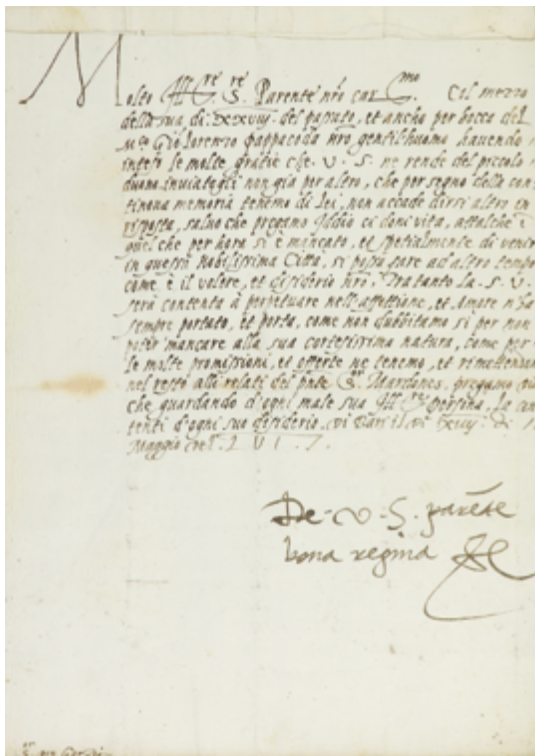 Molto Ill.re S.re Parente nr̃o car.mo Col mezzo
della sua di xxviij. del passato, et ancho per bocca del
Gio Lorenzo Pappacoda nr̃o gentilhuomo havendo
inteso le molte gratie che. V. S. ne rende del piccolo
duono inviatogli non già per altro, che per segno della con
tinova memoria tenemo di Lei, non accade dirsi altro in
risposta, salvo che pregamo Iddio ci doni vita, attalche
quel che per hora si è mancato, et spetialmente di venir
in questa Nobilissima Città, si possa fare ad altro tempo
come è il volere, et disiderio nr̃o. Tra tanto La. S. V.
serà contenta à perpetuare nell'affettione, et Amore n'ha
sempre portato, et porta, come non dubbitamo si per non
poter mancare alla sua cortesissima natura, come per
le molte promissioni, et offerte ne tenemo, et rimettendo
nel resto alli relati del S.or Mardones, pregamo
che guardando d'ogni male sua Ill.re persona, la con
tenti d'ogni suo disiderio, Di Bari il di di
Maggio del. L V I.
De. V. S. parẽte
bona regina